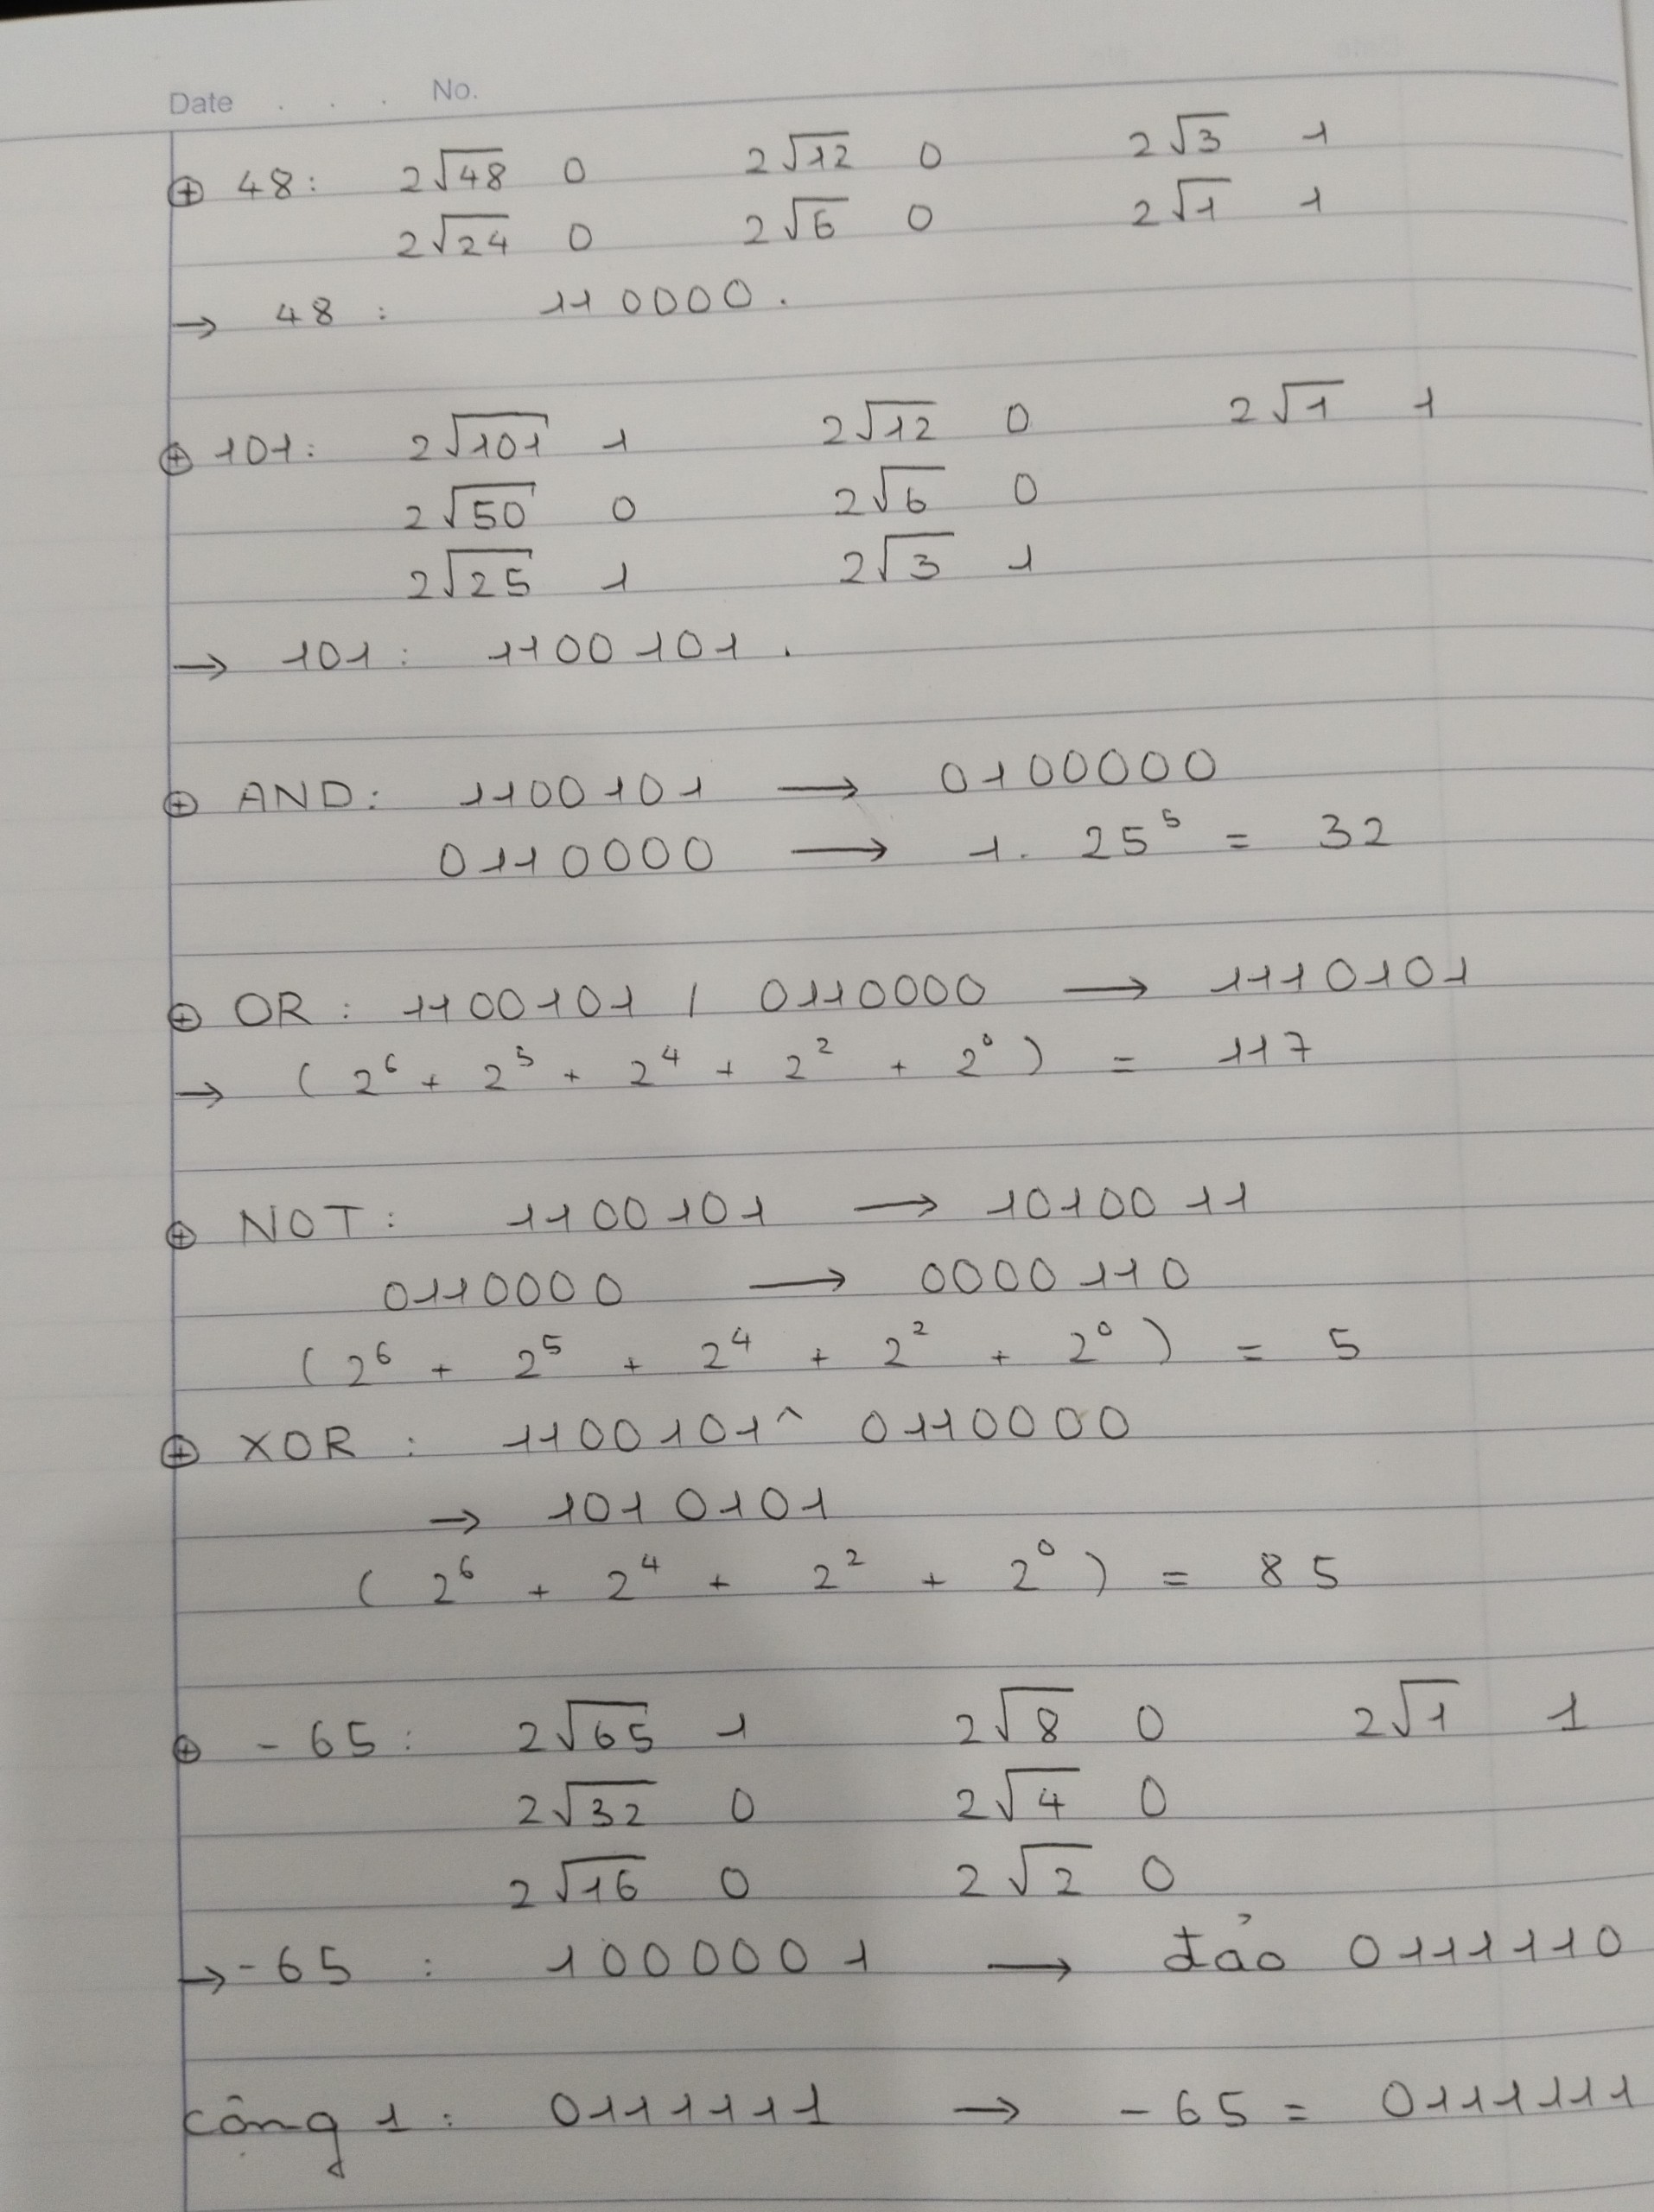 Date . . . No.
⊕ 48: 2√48 0 2√12 0 2√3 1
2√24 0 2√6 0 2√1 1
→ 48 : 110000.
⊕ 101: 2√101 1 2√12 0 2√1 1
2√50 0 2√6 0
2√25 1 2√3 1
→ 101: 1100101.
⊕ AND: 1100101 → 0100000
0110000 → 1. 25⁵ = 32
⊕ OR : 1100101 / 0110000 → 1110101
→ (2⁶ + 2⁵ + 2⁴ + 2² + 2⁰) = 117
⊕ NOT: 1100101 → 1010011
0110000 → 0000110
(2⁶ + 2⁵ + 2⁴ + 2² + 2⁰) = 5
⊕ XOR : 1100101^ 0110000
→ 1010101
(2⁶ + 2⁴ + 2² + 2⁰) = 85
⊕ -65: 2√65 1 2√8 0 2√1 1
2√32 0 2√4 0
2√16 0 2√2 0
→-65 : 1000001 → đảo 0111110
cộng 1: 0111111 → -65 = 0111111